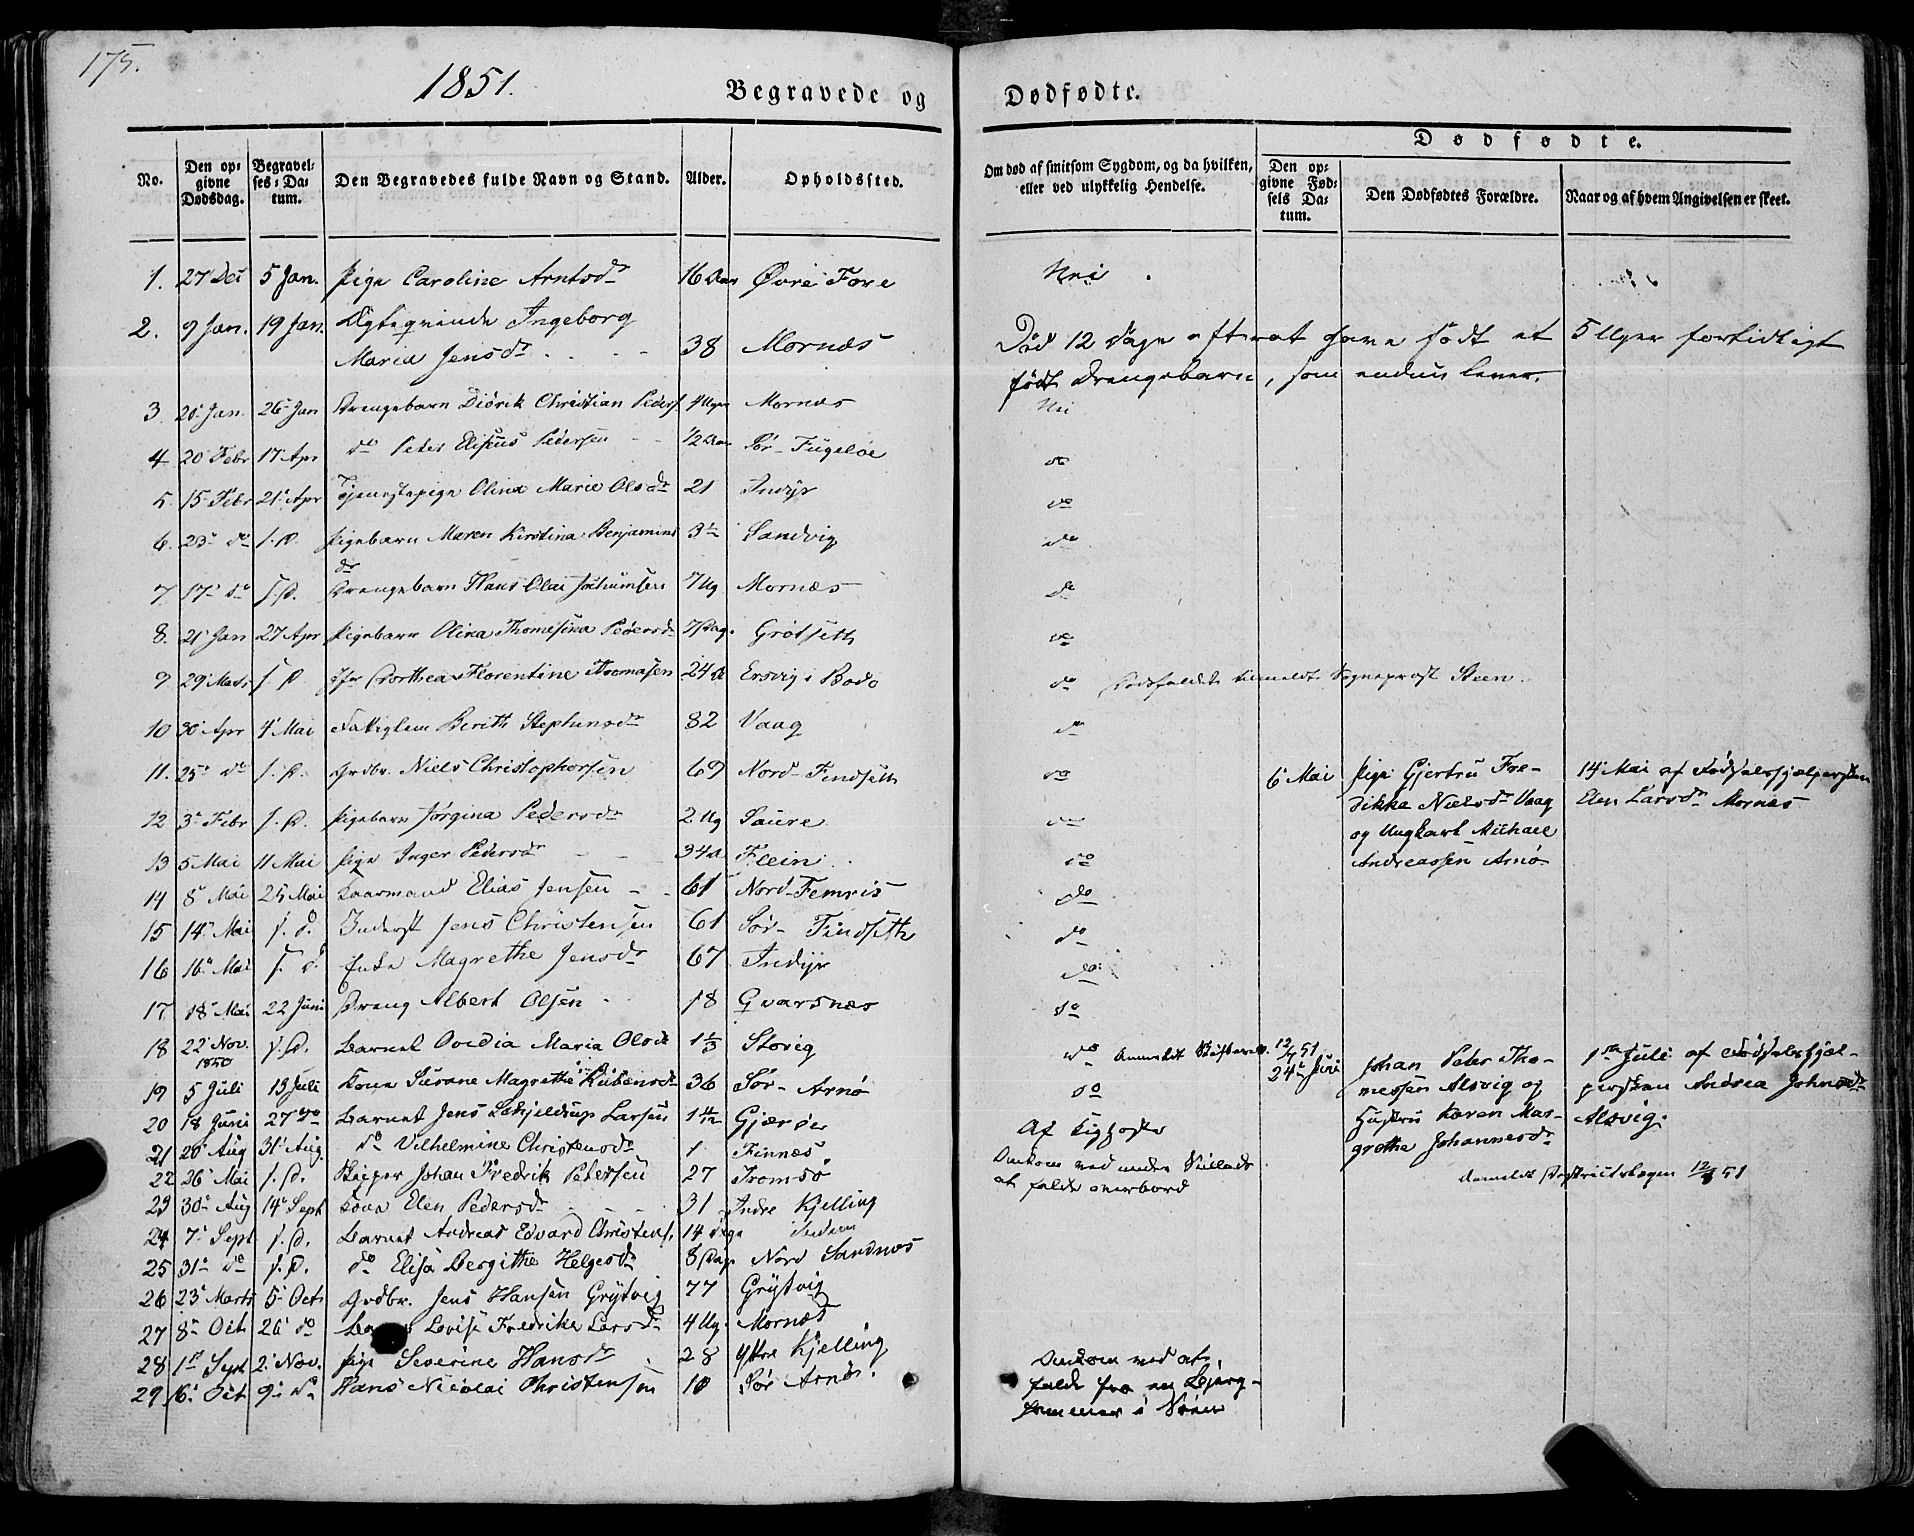 175.
1851.
Begravede og
Dødfødte.
No.
Den opgivne Dødsdag.
Begravelses-Datum.
Den Begravedes fulde Navn og Stand.
Alder.
Opholdssted.
Om død af smitsom Sygdom, og da hvilken,
eller ved ulykkelig Hendelse.
Dødfødte.
Den opgivne Fødsels Datum.
Den Dødfødtes Forældre.
Naar og af hvem Angivelsen er skeet.
1. 27 Dec 5 Jan. Pige Caroline Arntsdr 16 Aar Øvre Fore Nei
2. 9 Jan. 19 Jan. Ægteqvinde Ingeborg
Maria Jensdr 38 Mornæs
Død 12 Dage efter at have født et 5 Uger fortidligt
født Drengebarn, som endnu lever.
3 20 Jan. 26 Jan Drengebarn Didrik Christian Peders 4 Uger Mornæs Nei
4 20 Febr 17 Apr do Peter Eliseus Pedersen 1/2 Aar Sør-Fugeløe do
5 15 Febr 21 Apr Tjenestepige Olina Marie Olsdr 21 Indyr do
6. 23 do s. D. Pigebarn Maren Kirstina Benjamins
dr 3 1/2 Sandvig do
7 17 do s. D. Drengebarn Hans Olai Jochumsen 7 Ug Mornæs do
8. 21 Jan 27 Apr Pigebarn Olina Thomesina Pedersdr 7 Dag. Grøtseth do
9 29 Marts s. D Jfr Dorthea Florentine Thomasen 24 A Ersvig i Bodø do Dødsfaldet anmeldt Sogneprost Steen.
10 30 Apr 4 Mai Fattiglem Berith Stephensdr 82 Vaag do
11. 25 do s. D. Grdbr. Niels Christophersen 69 Nord-Findseth do
6 Mai Pige Gjertru Fre-
dikka Nielsdr Vaag
og Ungkarl Michael
Andreassen Arnø
14 Mai af Fødselshjælpersken
Elen Larsdr Mornæs
12 3 Febr s. D. Pigebarn Jørgina Pedersdr 2 Ug Saure do
13 5 Mai 11 Mai Pige Inger Pedersdr 34 A Flein do
14 8 Mai 25 Mai Kaarmand Elias Jensen 61 Nord-Femris do
15 14 Mai s. D. Inderst Jens Christensen 61 Sør-Findseth do
16 16 Mai s. D. Enke Magrethe Jensdr 67 Indyr do
17 18 Mai 22 Juni Dreng Albert Olsen 18 Qvarsnæs do
18 22 Nov. 1850 s. D. Barnet Ovedia Maria Olsdr 1 1/3 Storvig do
19 5 Juli 13 Juli Kone Susane Magrethe Rubensdr 36 Sør-Arnø do
24 Juni Johan Peter Tho-
messen Alsvig og
Hustru Karen Mar-
grethe Johannesdr
1ste Juli af Fødselshjæl-
persken Andrea Johnsdr
Alsvig.
20 18 Juni 27 do Barnet Jens Schjeldrup Larsen 1 4/12 Gjærøe Af Kighoste
21 20 Aug 31 Aug. do Vilhelmine Christensdr 1 Finnæs
22 26 Mai s. D. Skipper Johan Fredrik Petersen 27 Tromsø
Omkom ved under Seilads
at falde overbord
anmeldt 12/7 51
23 30 Aug 14 Sept Kone Elen Pedersdr 31 Indre Kjelling
24 7 Sept s. D. Barnet Andreas Edvard Christens. 14 Dage Indre
25 31 do s. D. do Elisa Bergitha Helgesdr 8 Dage Nord Sandnæs
26 23 Marts 5 Oct Grdbr. Jens Hansen Grytvig 77 Grytvig
27 8 Oct 26 do Lovise Fredrike Larsdr 4 Ug. Mornæs
28 1 Sept 2 Nov. Pige Severine Hansdr 28 Yttre Kjelling
29 6 Oct 9 do Hans Nicolai Christensen 10 Sør Arnø.
Omkom ved at
falde fra en Bjerg-
hammer i Søen